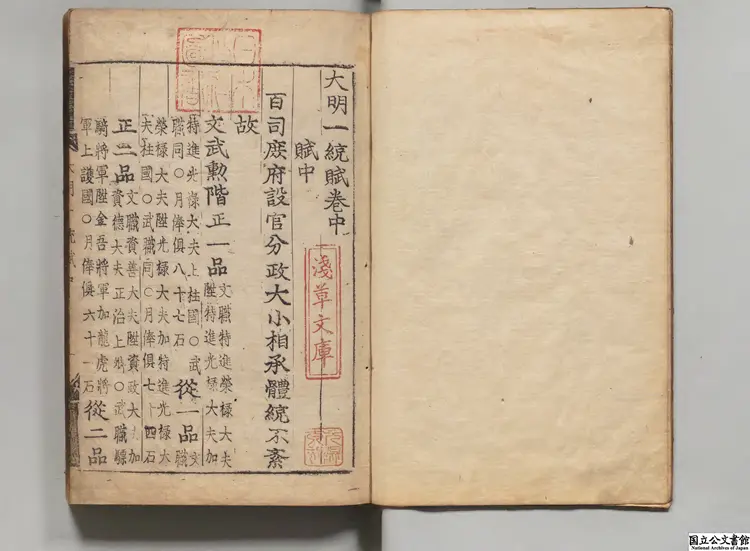 大明一統賦卷中
賦中
百司庶府設官分政大小相承體統不紊
故
文武勲階正一品文職特進榮祿大夫
陞特進光祿大夫加
特進光祿大夫上柱國〇武
職同〇月俸俱八十七石
從一品文
職
榮祿大夫陞光祿大夫加特進光祿大
夫柱國〇武職同〇月俸俱七十四石
正二品文職資善大夫陞資政大夫加
資德大夫正治上卿〇武職驃
騎將軍陞金吾將軍加龍虎將
軍上護國〇月俸俱六十一石
從二品
淺草文庫
國立公文書館
National Archives of Japan